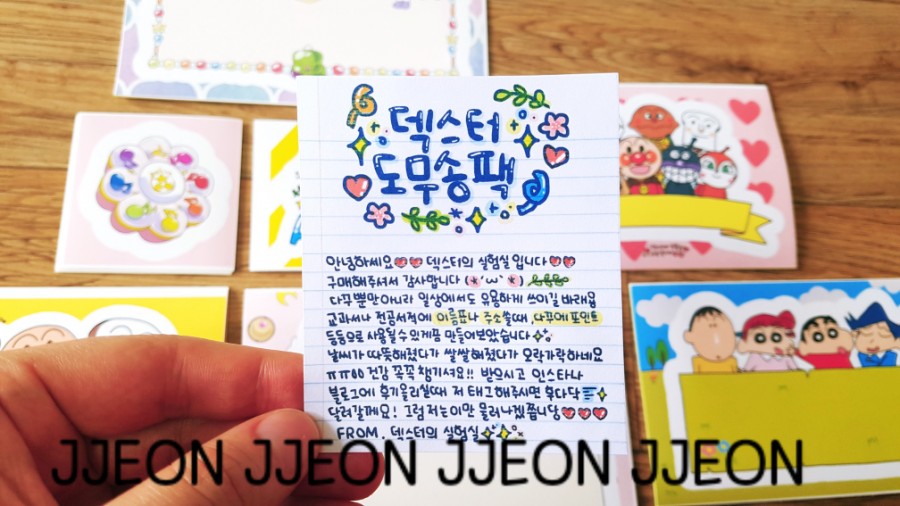 덱스터
도무송팩
안녕하세요♥♥ 덱스터의 실험실 입니다♥♥
구매해주셔서 감사합니다 (*'ω'*)
다꾸뿐만아니라 일상에서도 유용하게 쓰이길 바래욥
교과서나 전공서적에 이름표나 주소쓸때, 다꾸에 포인트
등등으로 사용될수있게끔 만들어보았습니다
날씨가 따뜻해졌다가 쌀쌀해졌다가 오락가락하네요
ㅠㅠ00 건강 꼭꼭 챙기셔요!! 받으시고 인스타나
블로그에 후기올리실때 저 태그해주시면 후다닥
달려갈께요! 그럼 저는이만 물러나겠쭙니당♥♥♥
FROM. 덱스터의 실험실
JJEON JJEON JJEON JJEON